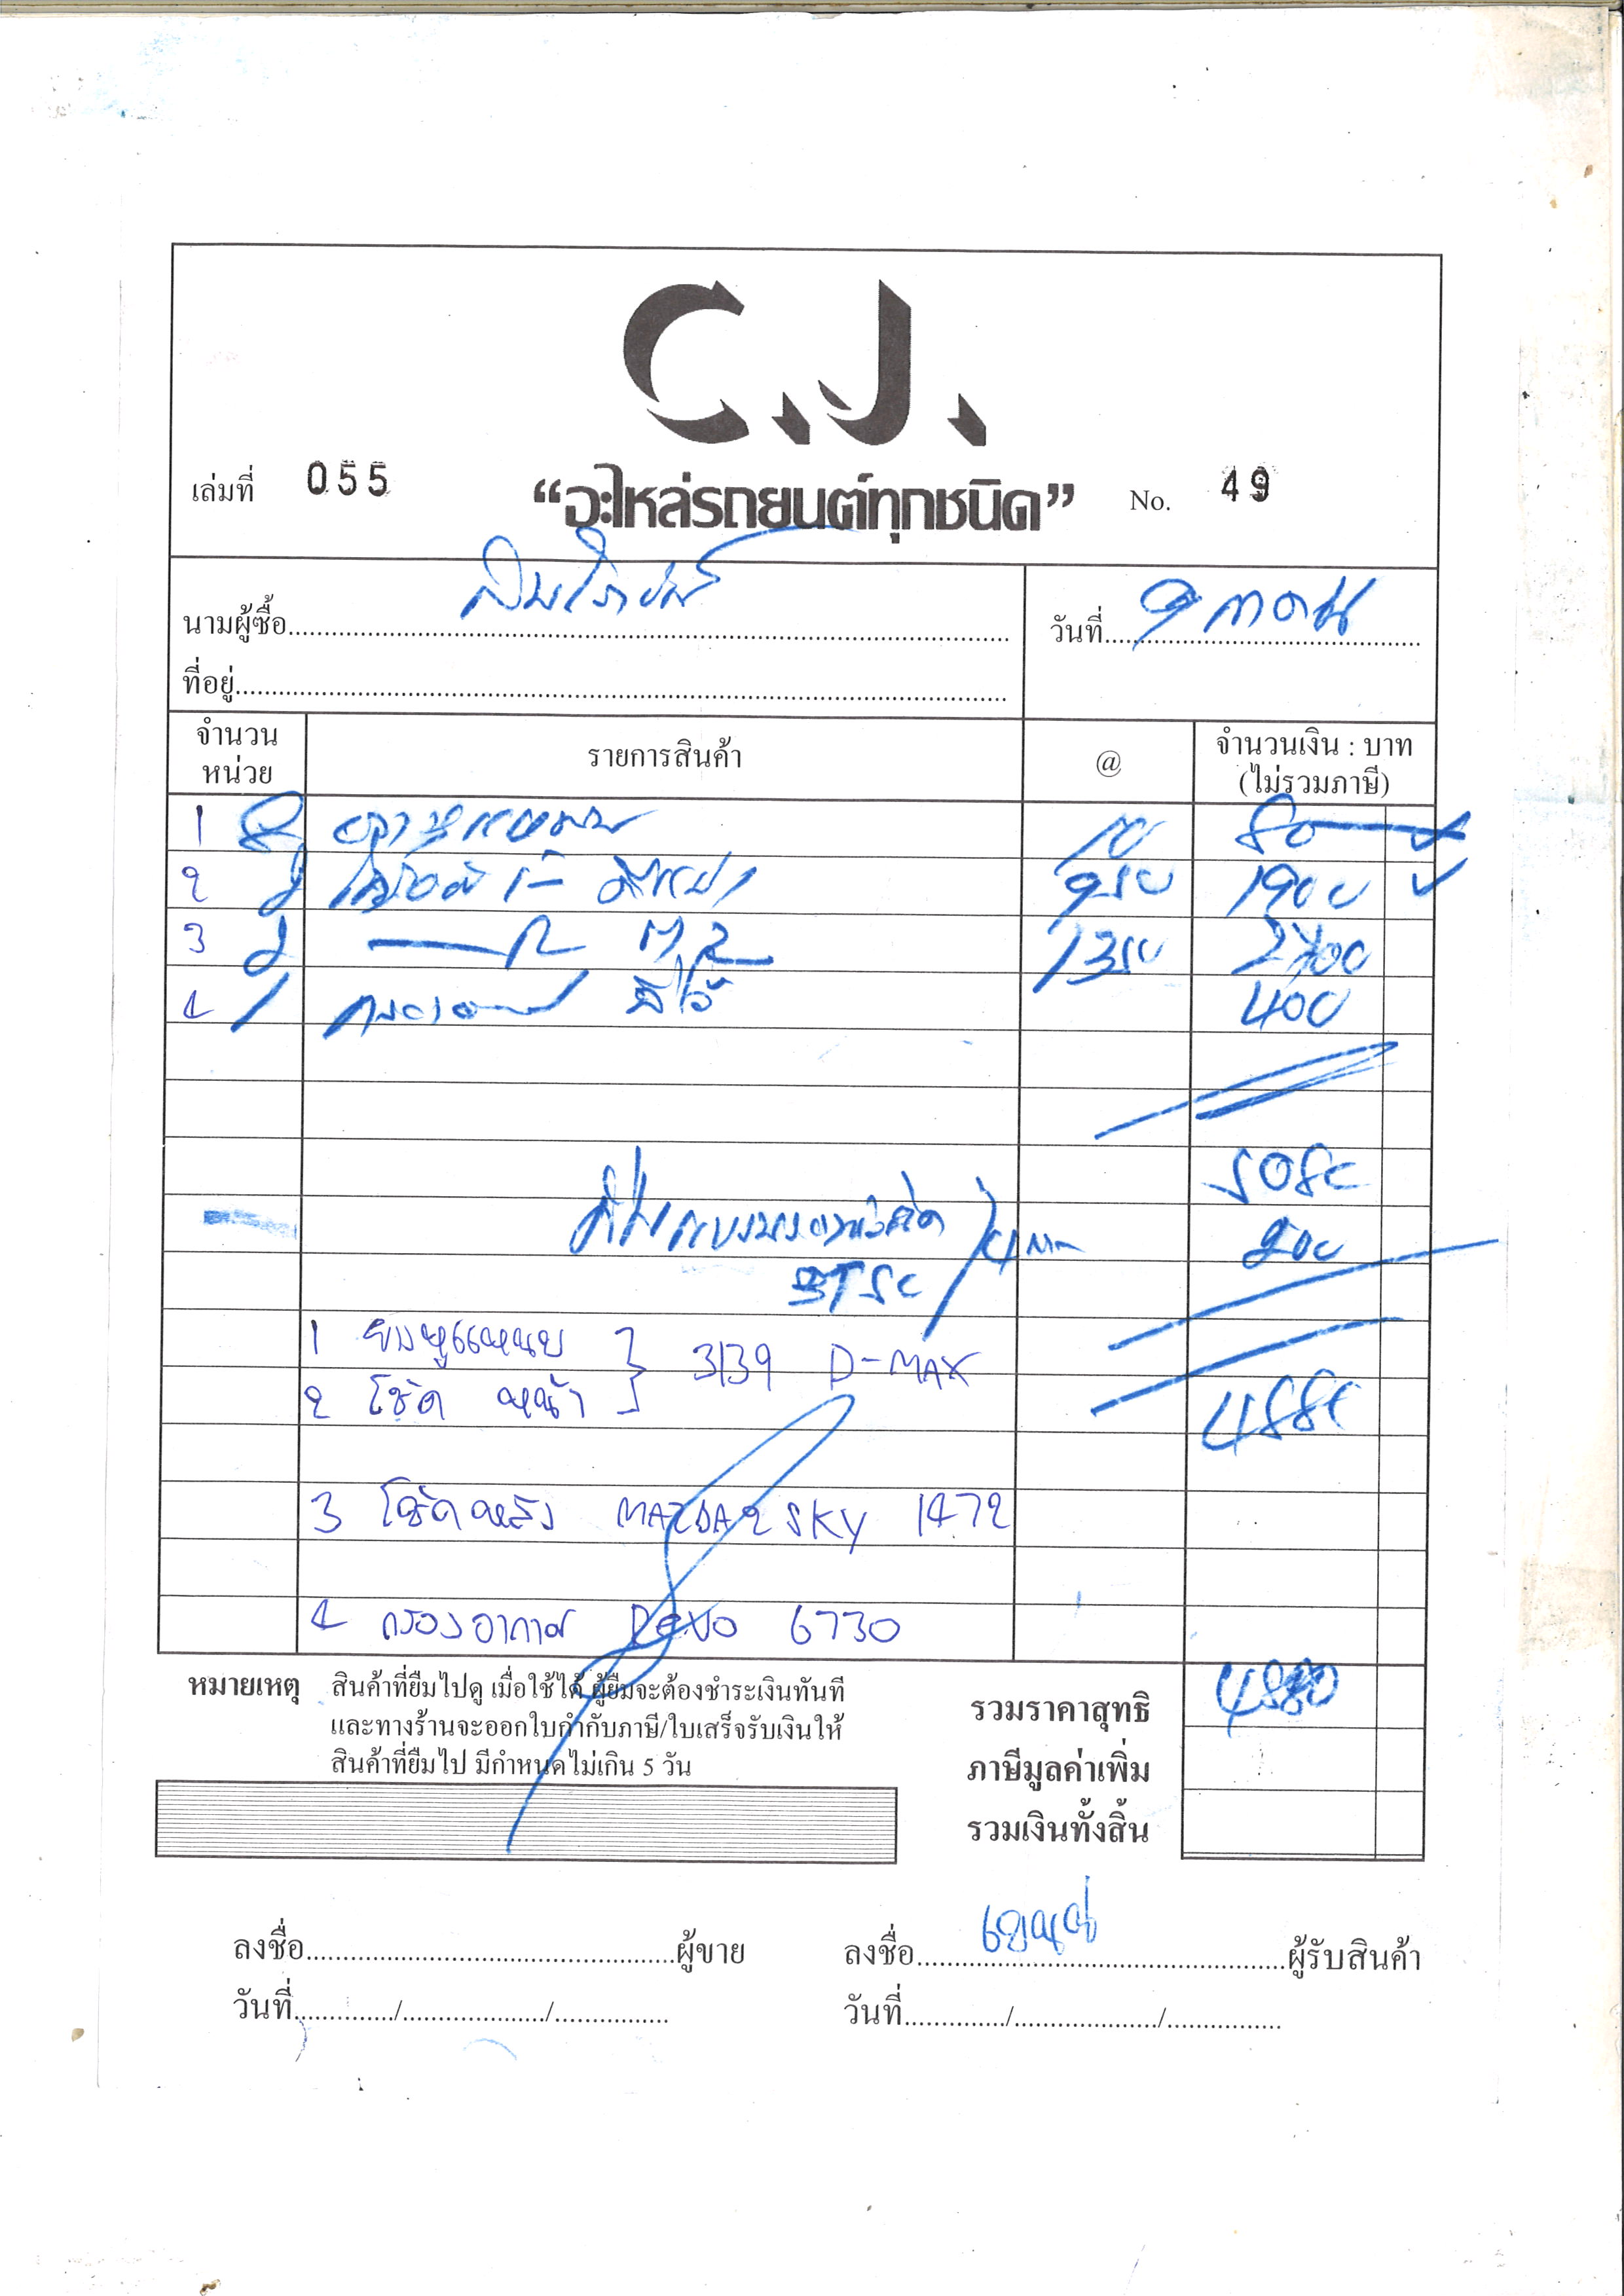 C.J.
เล่มที่ 055 “อะไหล่รถยนต์ทุกชนิด” No. 49
นามผู้ซื้อ วันที่ 9
ที่อยู่
จำนวน หน่วย รายการสินค้า @ จำนวนเงิน : บาท (ไม่รวมภาษี)
1 8 10 80
2 2 950 1900
3 2 1350 2700
4 1 400
5080
200
1 ยางหูแหนบ } 3139 D-MAX
2 โช้ค หน้า
4880
3 โช้คหลัง MAZDA2 SKY 1472
4 กรองอากาศ REVO 6730
หมายเหตุ สินค้าที่ยืมไปดู เมื่อใช้ได้ ผู้ยืมจะต้องชำระเงินทันที
และทางร้านจะออกใบกำกับภาษี/ใบเสร็จรับเงินให้
สินค้าที่ยืมไป มีกำหนดไม่เกิน 5 วัน
รวมราคาสุทธิ 4880
ภาษีมูลค่าเพิ่ม
รวมเงินทั้งสิ้น
ลงชื่อ ผู้ขาย ลงชื่อ ผู้รับสินค้า
วันที่ / / วันที่ / /